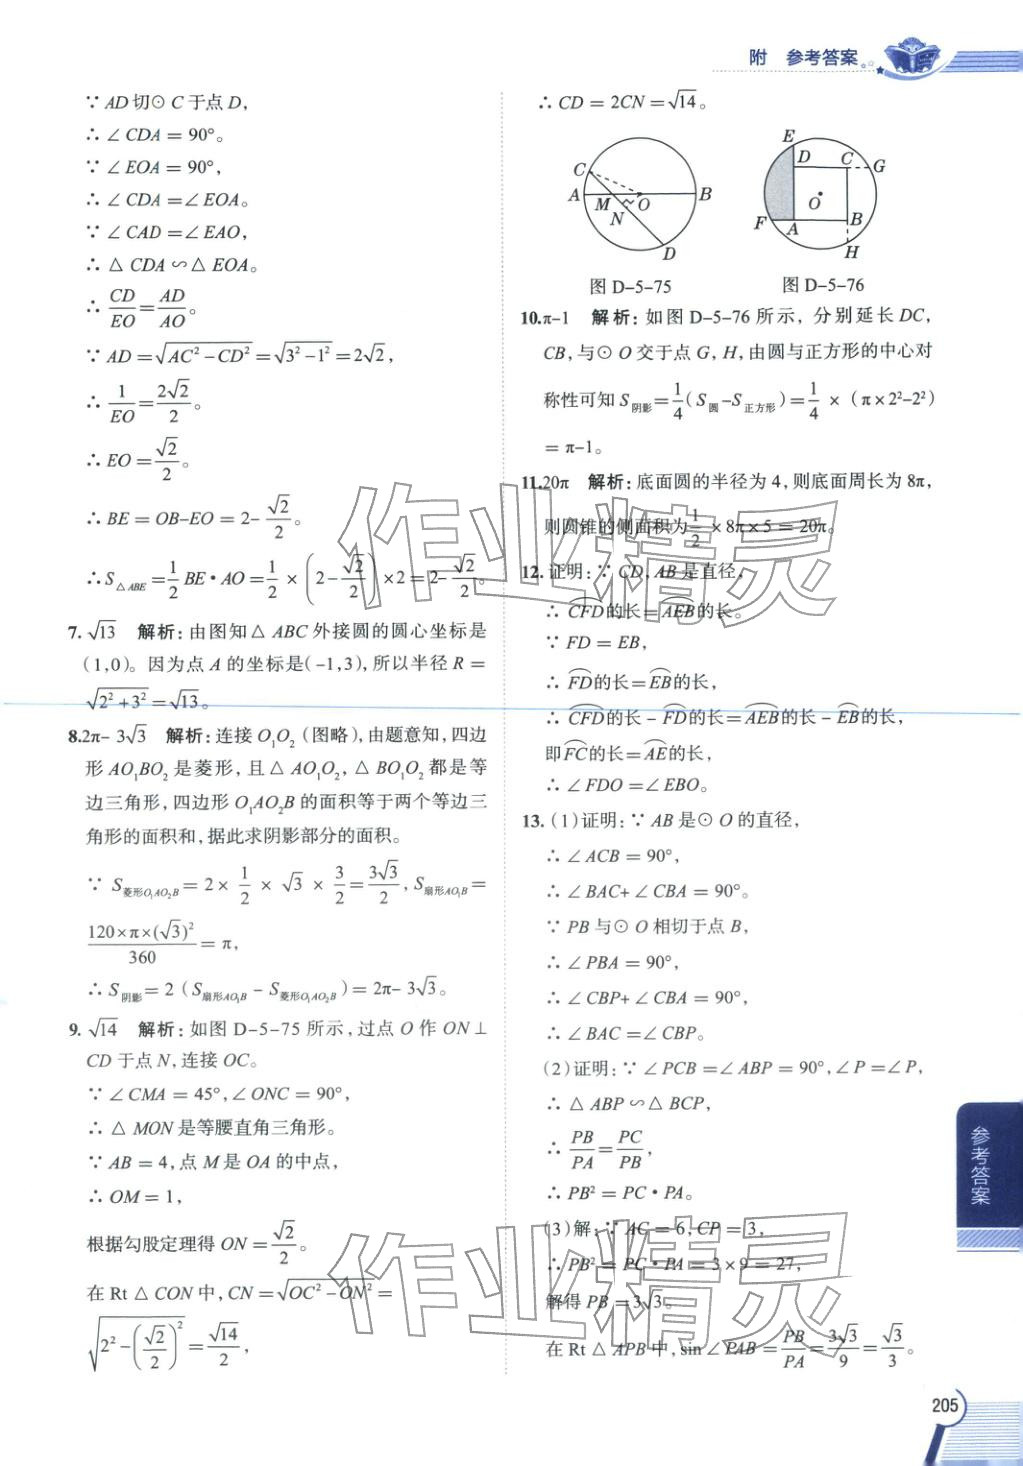 附 参考答案
∵ AD切⊙ C于点D,
∴ ∠ CDA = 90°。
∵ ∠ EOA = 90°,
∴ ∠ CDA = ∠ EOA。
∵ ∠ CAD = ∠ EAO,
∴ △ CDA ∽ △ EOA。
∴ CD/EO = AD/AO。
∵ AD = √(AC² - CD²) = √(3² - 1²) = 2√2,
∴ 1/EO = 2√2/2。
∴ EO = √2/2。
∴ BE = OB-EO = 2- √2/2。
∴ S△ABE = 1/2 BE·AO = 1/2 × (2 - √2/2) × 2 = 2- √2/2。
7. √13 解析:由图知△ ABC外接圆的圆心坐标是
(1,0)。因为点A的坐标是(-1,3),所以半径R =
√(2² + 3²) = √13。
8.2π- 3√3 解析:连接O₁O₂(图略),由题意知,四边
形AO₁BO₂是菱形,且△ AO₁O₂,△ BO₁O₂都是等
边三角形,四边形O₁AO₂B的面积等于两个等边三
角形的面积和,据此求阴影部分的面积。
∵ S菱形O₁AO₂B = 2× 1/2 × √3 × 3/2 = 3√3/2, S扇形AO₁B =
120×π×(√3)²/360 = π,
∴ S阴影 = 2 (S扇形AO₁B - S菱形O₁AO₂B) = 2π- 3√3。
9. √14 解析:如图D-5-75所示,过点O作ON⊥
CD于点N,连接OC。
∵ ∠ CMA = 45°,∠ ONC = 90°,
∴ △ MON是等腰直角三角形。
∵ AB = 4,点M是OA的中点,
∴ OM = 1,
根据勾股定理得ON = √2/2。
在Rt△ CON中,CN = √(OC² - ON²) =
√(2² - (√2/2)²) = √14/2,
∴ CD = 2CN = √14。
C
A M O B
N
D
图D-5-75
E
D C G
O
F A B
H
图D-5-76
10.π-1 解析:如图D-5-76所示,分别延长DC,
CB,与⊙ O交于点G,H,由圆与正方形的中心对
称性可知S阴影 = 1/4 (S圆 - S正方形) = 1/4 × (π×2²-2²)
= π-1。
11.20π 解析:底面圆的半径为4,则底面周长为8π,
则圆锥的侧面积为 1/2 ×8π×5 = 20π。
12.证明:∵ CD,AB是直径,
∴ ⌒CFD的长 = ⌒AEB的长。
∵ FD = EB,
∴ ⌒FD的长 = ⌒EB的长,
∴ ⌒CFD的长 - ⌒FD的长 = ⌒AEB的长 - ⌒EB的长,
即⌒FC的长 = ⌒AE的长,
∴ ∠ FDO = ∠ EBO。
13.(1)证明:∵ AB是⊙ O的直径,
∴ ∠ ACB = 90°,
∴ ∠ BAC+ ∠ CBA = 90°。
∵ PB与⊙ O相切于点B,
∴ ∠ PBA = 90°,
∴ ∠ CBP+ ∠ CBA = 90°,
∴ ∠ BAC = ∠ CBP。
(2)证明:∵ ∠ PCB = ∠ ABP = 90°,∠ P = ∠ P,
∴ △ ABP ∽ △ BCP,
∴ PB/PA = PC/PB,
∴ PB² = PC·PA。
(3)解:∵ AC = 6,CP = 3,
∴ PB² = PC·PA = 3×9 = 27,
解得PB = 3√3。
在Rt△ APB中,sin∠ PAB = PB/PA = 3√3/9 = √3/3。
参考答案
205
作业精灵
作业精灵